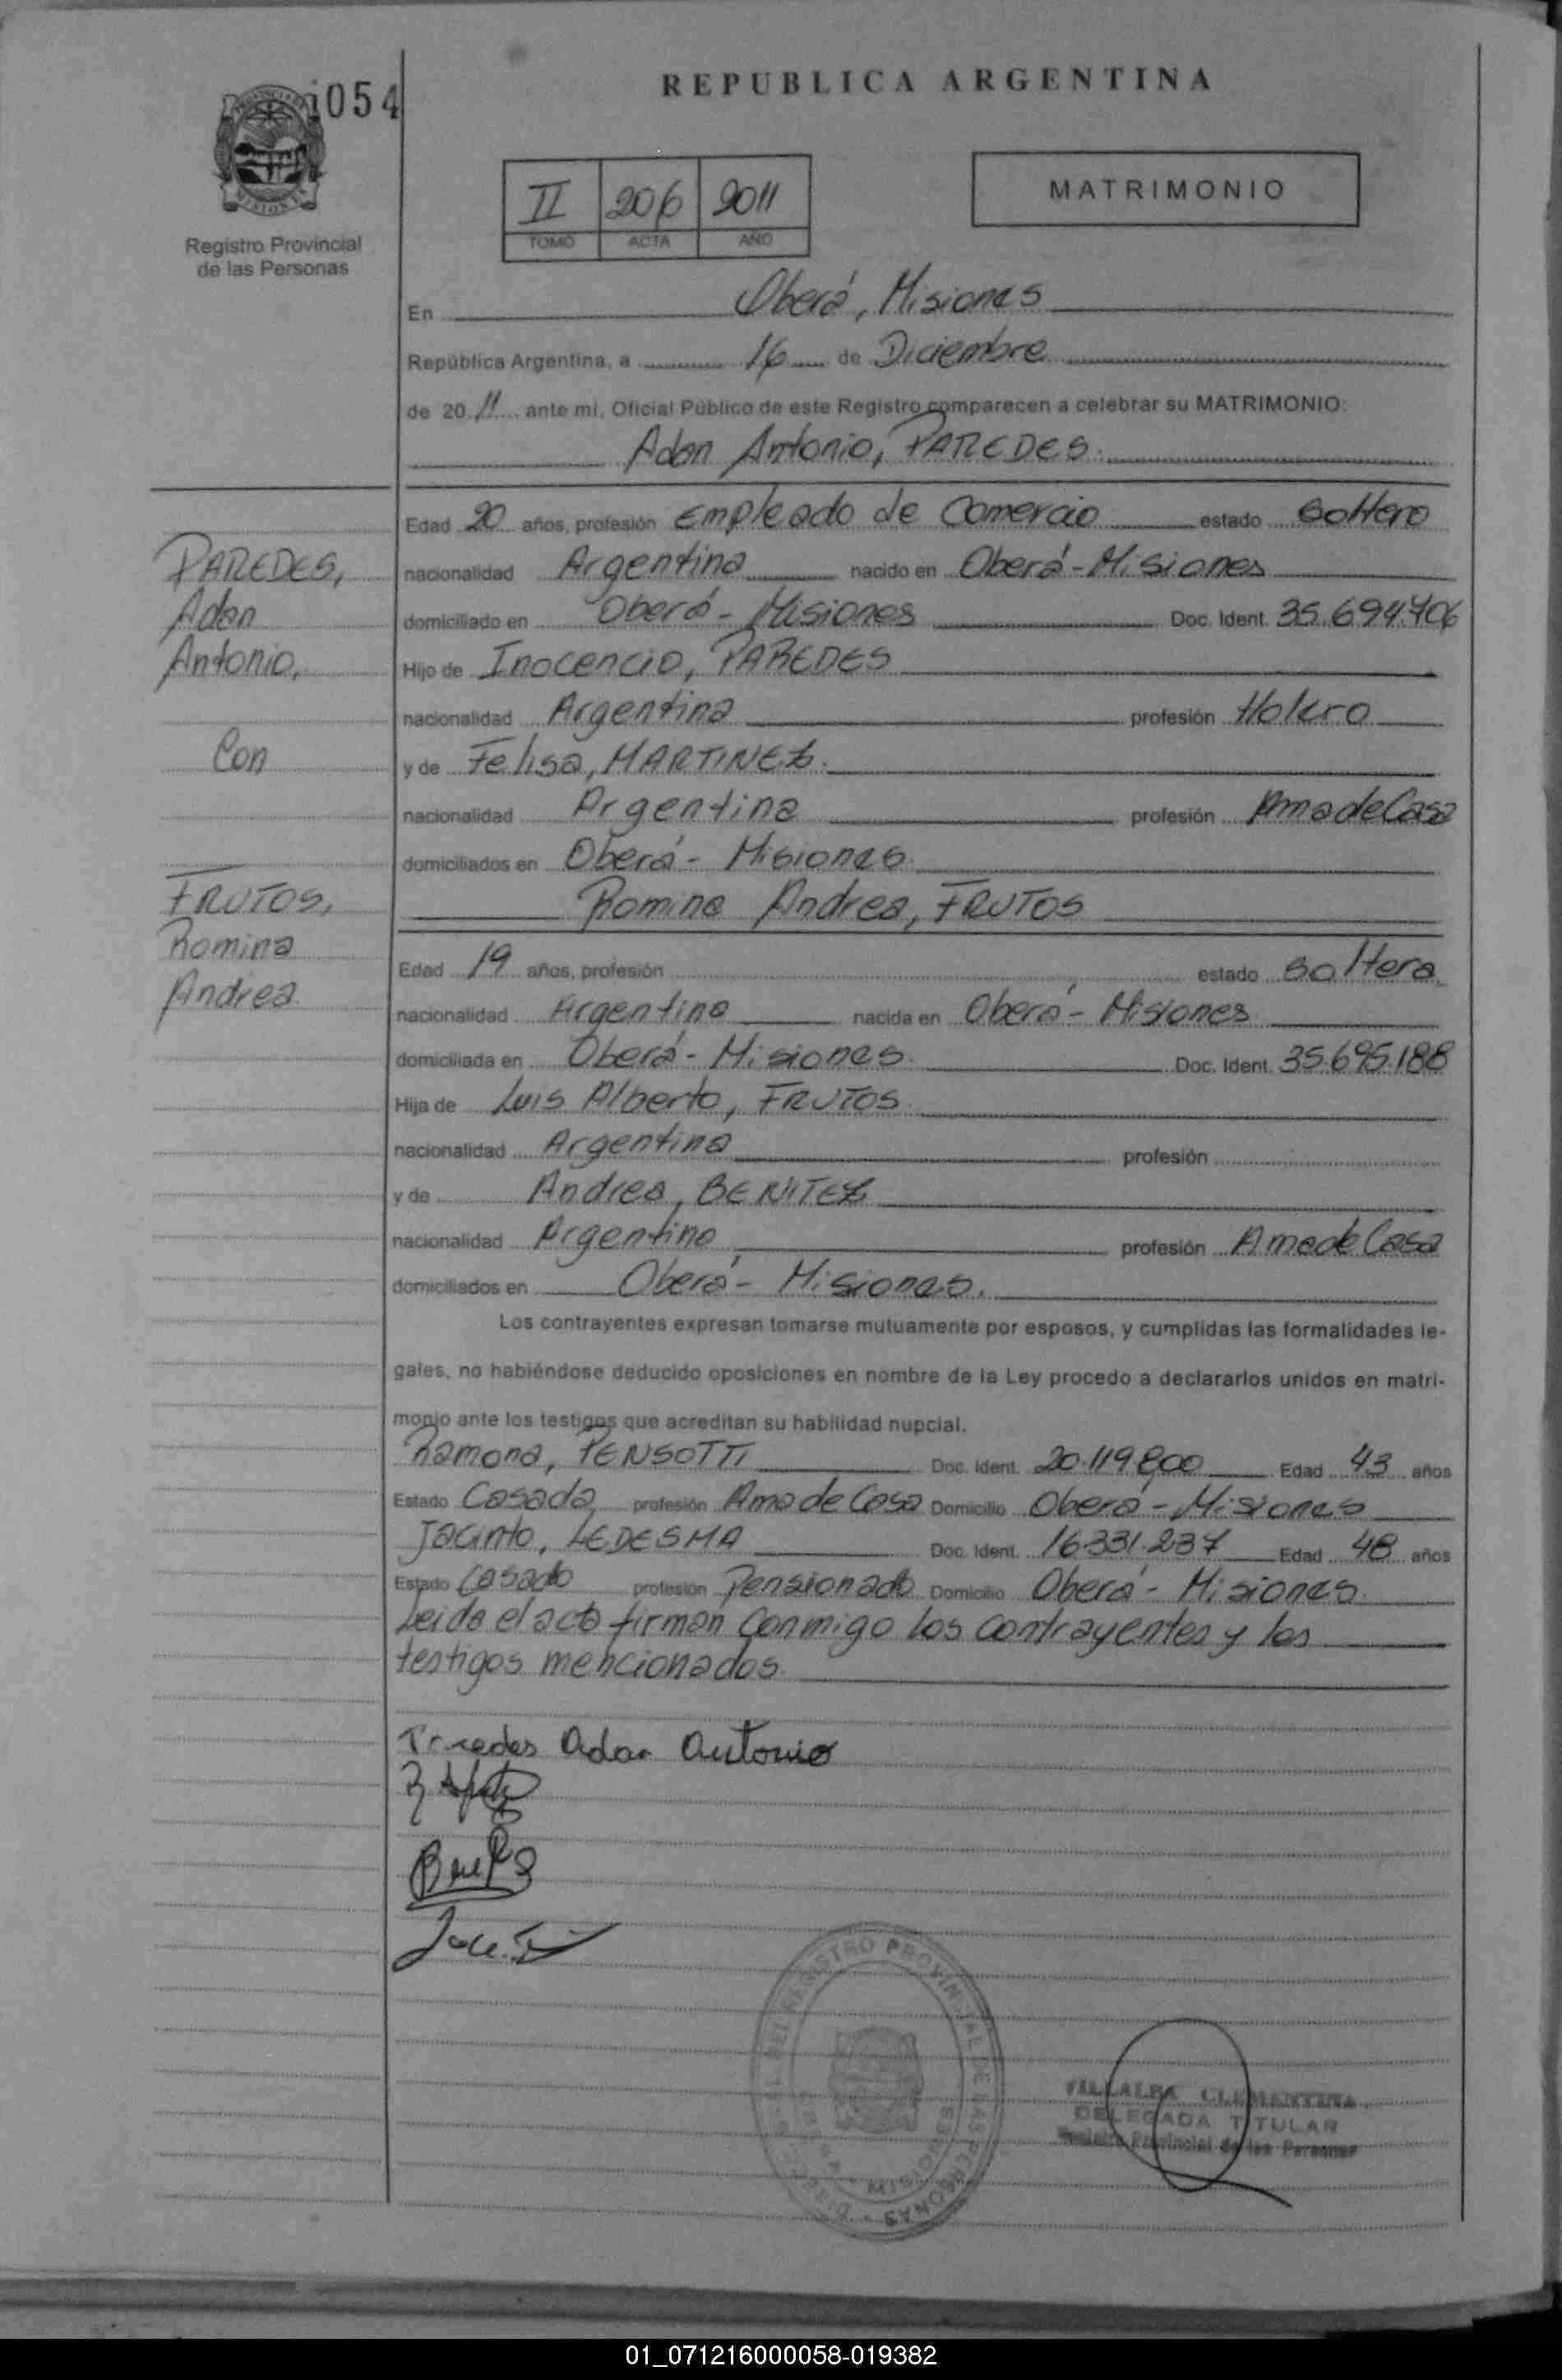 1054
REPUBLICA ARGENTINA
Registro Provincial
de las Personas
II 206 2011
TOMO ACTA AÑO
MATRIMONIO
En Oberá, Misiones
República Argentina, a 16 de Diciembre
de 2011 ante mi, Oficial Público de este Registro comparecen a celebrar su MATRIMONIO:
Adan Antonio, PAREDES.
PAREDES,
Adan
Antonio,
Con
FRUTOS,
Romina
Andrea.
Edad 20 años, profesión Empleado de Comercio estado Soltero
nacionalidad Argentina nacido en Oberá - Misiones
domiciliado en Oberá - Misiones Doc. Ident. 35.694.706
Hijo de Inocencio, PAREDES
nacionalidad Argentina profesión
y de Felisa, MARTINEZ.
nacionalidad Argentina profesión Ama de Casa
domiciliados en Oberá - Misiones.
Romina Andrea, FRUTOS
Edad 19 años, profesión estado Soltera
nacionalidad Argentina nacida en Oberá - Misiones
domiciliada en Oberá - Misiones. Doc. Ident. 35.695.188
Hija de Luis Alberto, FRUTOS.
nacionalidad Argentina profesión
y de Andrea, BENITEZ
nacionalidad Argentina profesión Ama de Casa
domiciliados en Oberá - Misiones.
Los contrayentes expresan tomarse mutuamente por esposos, y cumplidas las formalidades le-
gales, no habiéndose deducido oposiciones en nombre de la Ley procedo a declararlos unidos en matri-
monio ante los testigos que acreditan su habilidad nupcial.
Ramona, PENSOTTI Doc. Ident. 20.119.800 Edad 43 años
Estado Casada profesión Ama de Casa Domicilio Oberá - Misiones
Jacinto, LEDESMA Doc. Ident. 16.331.237 Edad 48 años
Estado Casado profesión Pensionado Domicilio Oberá - Misiones.
Leida el acta firman conmigo los contrayentes y los
testigos mencionados.
Paredes Adan Antonio
VILLALBA CLEMENTINA
DELEGADA TITULAR
Registro Provincial de las Personas
01_071216000058-019382